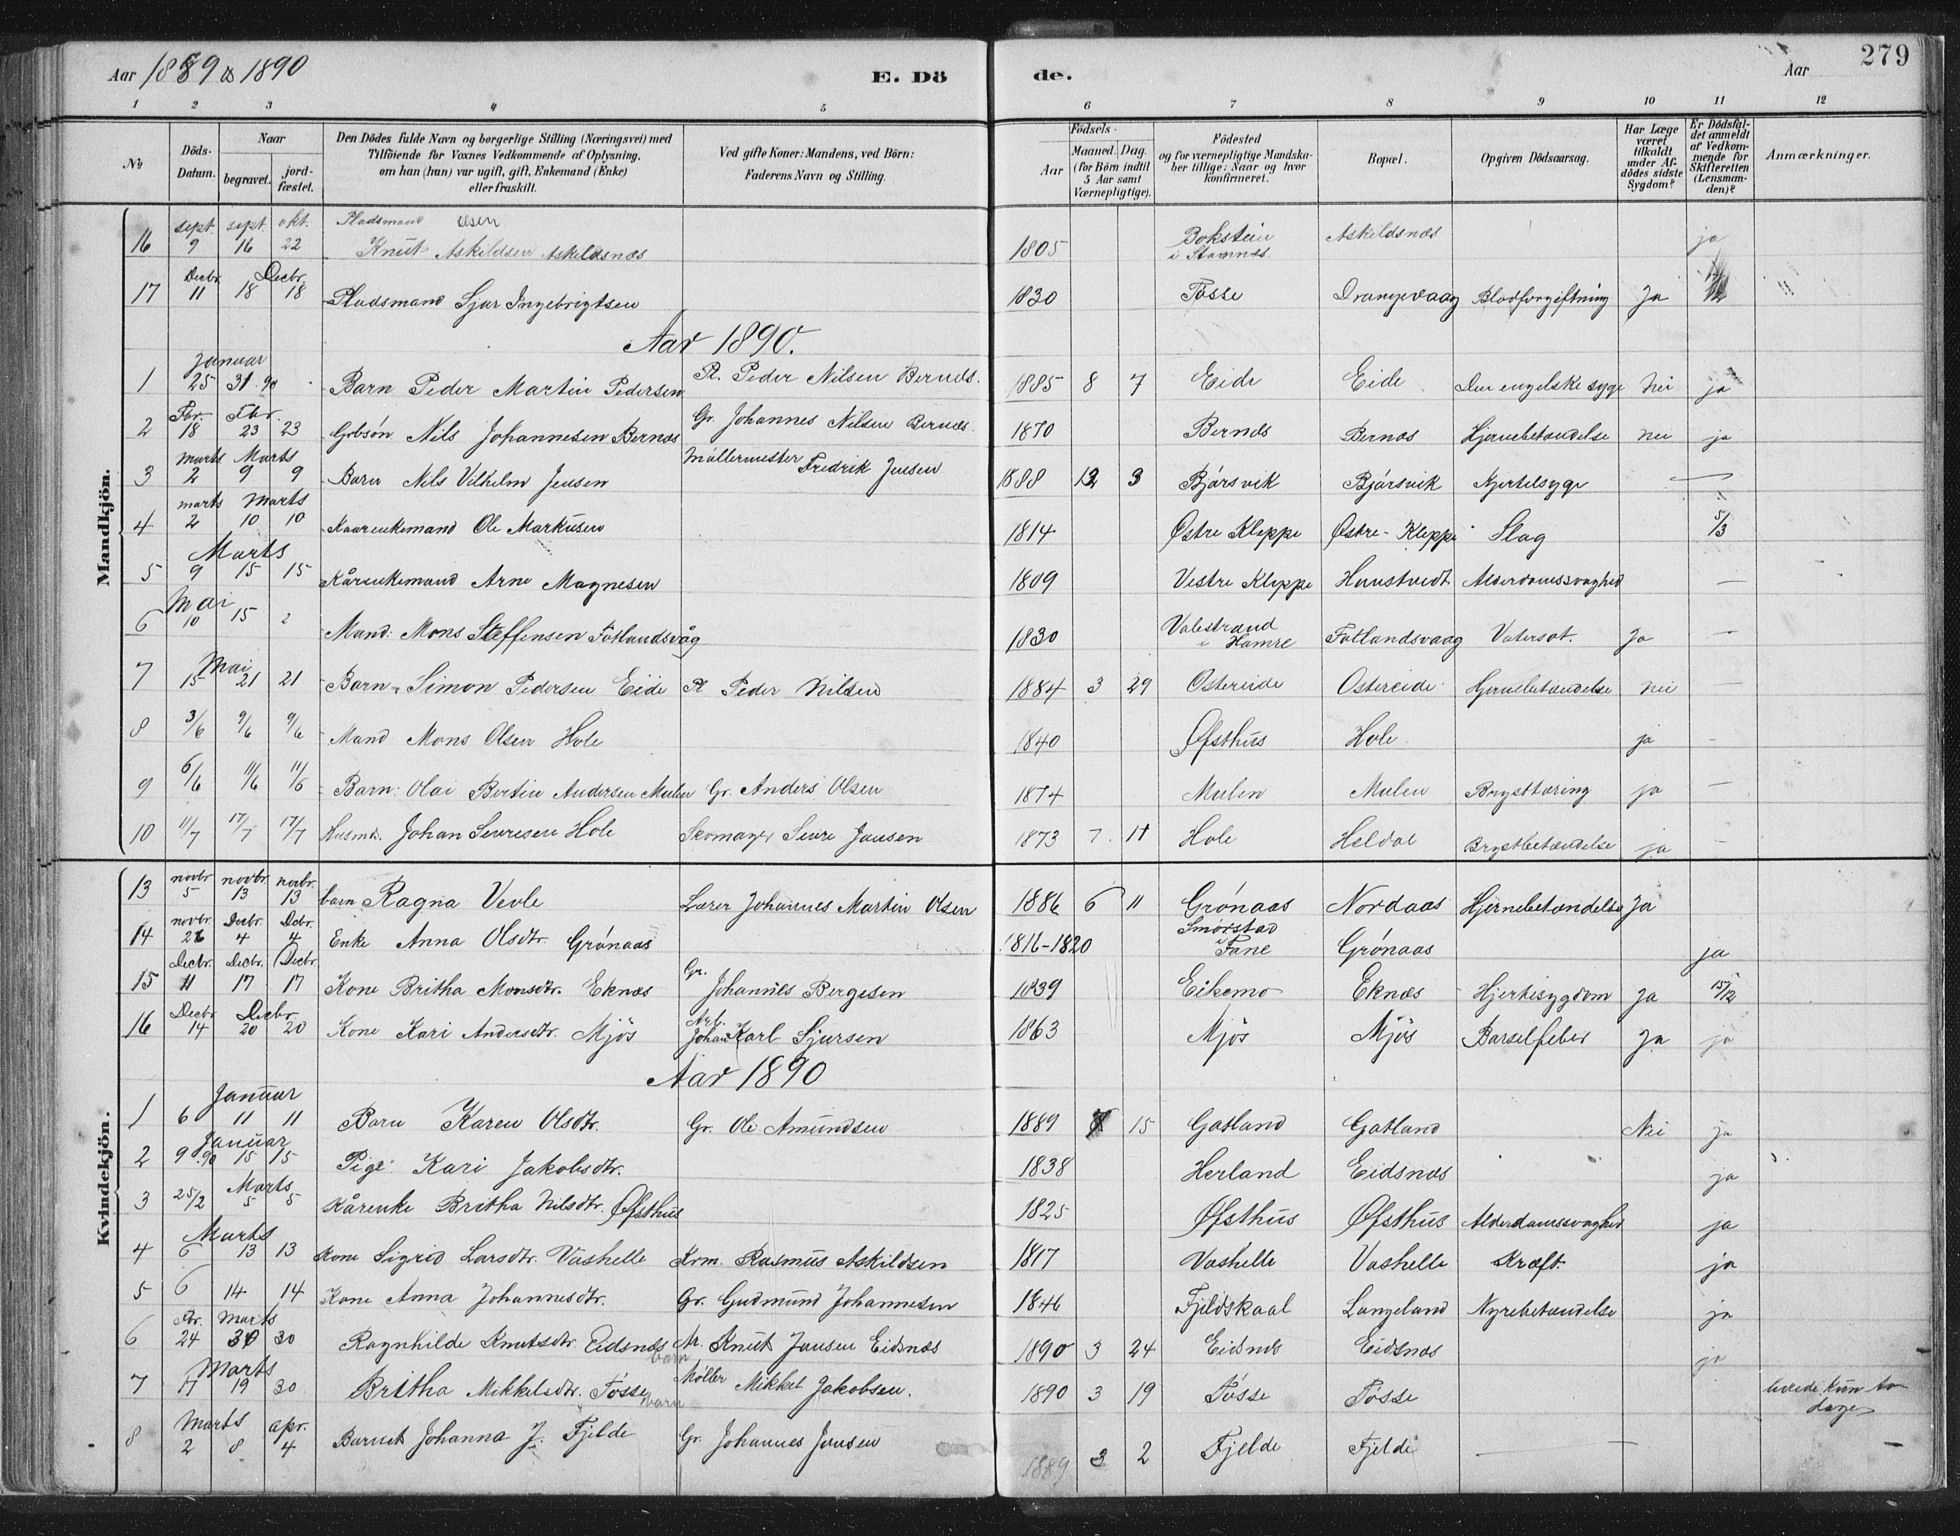 Aar 1889 & 1890 E. Dö de. Aar 279
1 2 3 4 5 6 7 8 9 10 11 12
No Döds-Datum. Naar begravet. jordfæstet. Den Dödes fulde Navn og borgerlige Stilling (Næringsvei) med Tilföiende for Voxnes Vedkommende af Oplysning, om han (hun) var ugift, gift, Enkemand (Enke) eller fraskilt. Ved gifte Koner: Mandens, ved Börn: Faderens Navn og Stilling. Födsels- Aar Maaned. Dag. (for Börn indtil 5 Aar samt Værnepligtige). Födested og for værnepligtige Mandskaber tillige: Naar og hvor konfirmeret. Bopæl. Opgiven Dödsaarsag. Har Læge været tilkaldt under Afdödes sidste Sygdom? Er Dödsfaldet anmeldt af Vedkommende for Skifteretten (Lensmanden)? Anmærkninger.
Mandkjön.
16 sept. 9 sept. 16 okt. 22 Pladsmand Knut Olsen Askildsen Askeldsnæs 1805 Bokstein i Stamnes Askeldsnæs ja
17 Decbr. 11 18 Decbr. 18 Pladsmand Sjur Ingebrigtsen 1830 Tøsse Drangevaag Blodforgiftning Ja
Aar 1890.
1 Januar 25 31 90 Barn Peder Martin Pedersen Pl. Peder Nilsen Bernæs. 1885 8 7 Eide Eide Den engelske syge Nei ja
2 Fbr. 18 Fbr. 23 23 Grbsøn Nils Johannesen Bernæs Gr. Johannes Nilsen Bernæs. 1870 Bernæs Bernæs Hjernebetændelse nei ja
3 Marts 2 Marts 9 9 Barn Nils Vilhelm Jensen Møllermester Fredrik Jensen 1888 12 3 Bjørsvik Bjørsvik Kjertelsyge —
4 marts 2 Marts 10 10 Kaarenkemand Ole Markusen 1814 Østre Kleppe Østre-Kleppe Slag 5/3
5 Marts 9 15 15 Kårenkemand Arne Magnesen 1809 Vestre Kleppe Hunstvedt Alderdomssvaghed —
6 Mai 10 15 2 Mand: Mons Steffensen Fotlandsvåg 1830 Valestrand i Hamre Fotlandsvaag Vatersot. Ja —
7 Mai 15 21 21 Barn Simon Pedersen Eide Pl. Peder Nilsen 1884 3 29 Ostereide Ostereide Hjernebetændelse nei —
8 3/6 9/6 9/6 Mand Mons Olsen Hole 1840 Øfsthus Hole ja -
9 6/6 11/6 11/6 Barn: Olai Bertin Andersen Mulen Gr. Anders Olsen 1874 Mulen Mulen Brysttæring ja —
10 11/7 17/7 17/7 Husmd. Johan Severesen Hole Skomager Sevre Jansen 1873 7 11 Hole Heldal Brystbetændelse ja —
Kvindekjön.
13 novbr. 5 novbr. 13 novbr. 13 barn Ragna Vevle Lærer Johannes Martin Olsen 1886 6 11 Grønaas Nordaas Hjernebetændelse Ja
14 novbr. Decbr. 4 Dcbr. 4 Enke Anna Olsdtr. Grønaas 1816-1820 Smørstad i Fane Grønaas ja
15 Decbr. 11 Decbr. 17 Decbr. 17 Kone Britha Monsdtr. Eknæs Gr. Johannes Bergesen 1839 Eikemo Eknæs Hjertesygdom Ja 15/12
16 Decbr. 14 Decbr. 20 20 Kone Kari Andersdtr. Mjøs Arb. Johan Karl Sjursen 1863 Mjøs Mjøs Barselfeber Ja ja
Aar 1890
1 Januar 6 11 11 Barn Karen Olsdtr. Gr. Ole Amundsen 1889 15 Gatland Gatland Nei ja
2 Januar 9 90 15 15 Pige Kari Jakobsdtr. 1838 Herland Eidsnæs ja
3 25/2 Marts 5 5 Kårenke Britha Nilsdtr. Øfsthus 1825 Øfsthus Øfsthus Alderdomssvaghed ja
4 Marts 6 13 13 Kone Sigrid Larsdtr. Vashelle Krm. Rasmus Askildsen 1817 Vashelle Vashelle Kræft. ja
5 6 14 14 Kone Anna Johannesdtr. Gr. Gudmund Johannesen 1846 Fjeldskaal Langeland Nyrebetændelse ja
6 Fbr. 24 Marts 30 30 Ragnhilde Knutsdtr. Eidsnæs barn Knut Jansen Eidsnæs 1890 3 24 Eidsnæs Eidsnæs ja
7 Marts 17 19 30 Britha Mikkelsdtr. Tøsse barn Møller Mikkel Jakobsen. 1890 3 19 Tøsse Tøsse levede kun to dage
8 Marts 2 8 apr. 4 Barnet Johanna J. Fjelde Gr. Johannes Jansen 1889 3 2 Fjelde Fjelde —